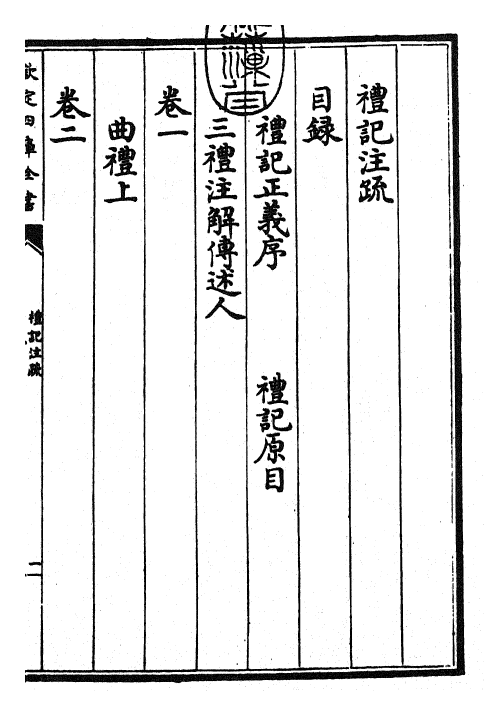 禮記注疏
目録
禮記正義序 禮記原目
三禮注解傳述人
卷一
曲禮上
卷二
欽定四庫全書
禮記注疏
二